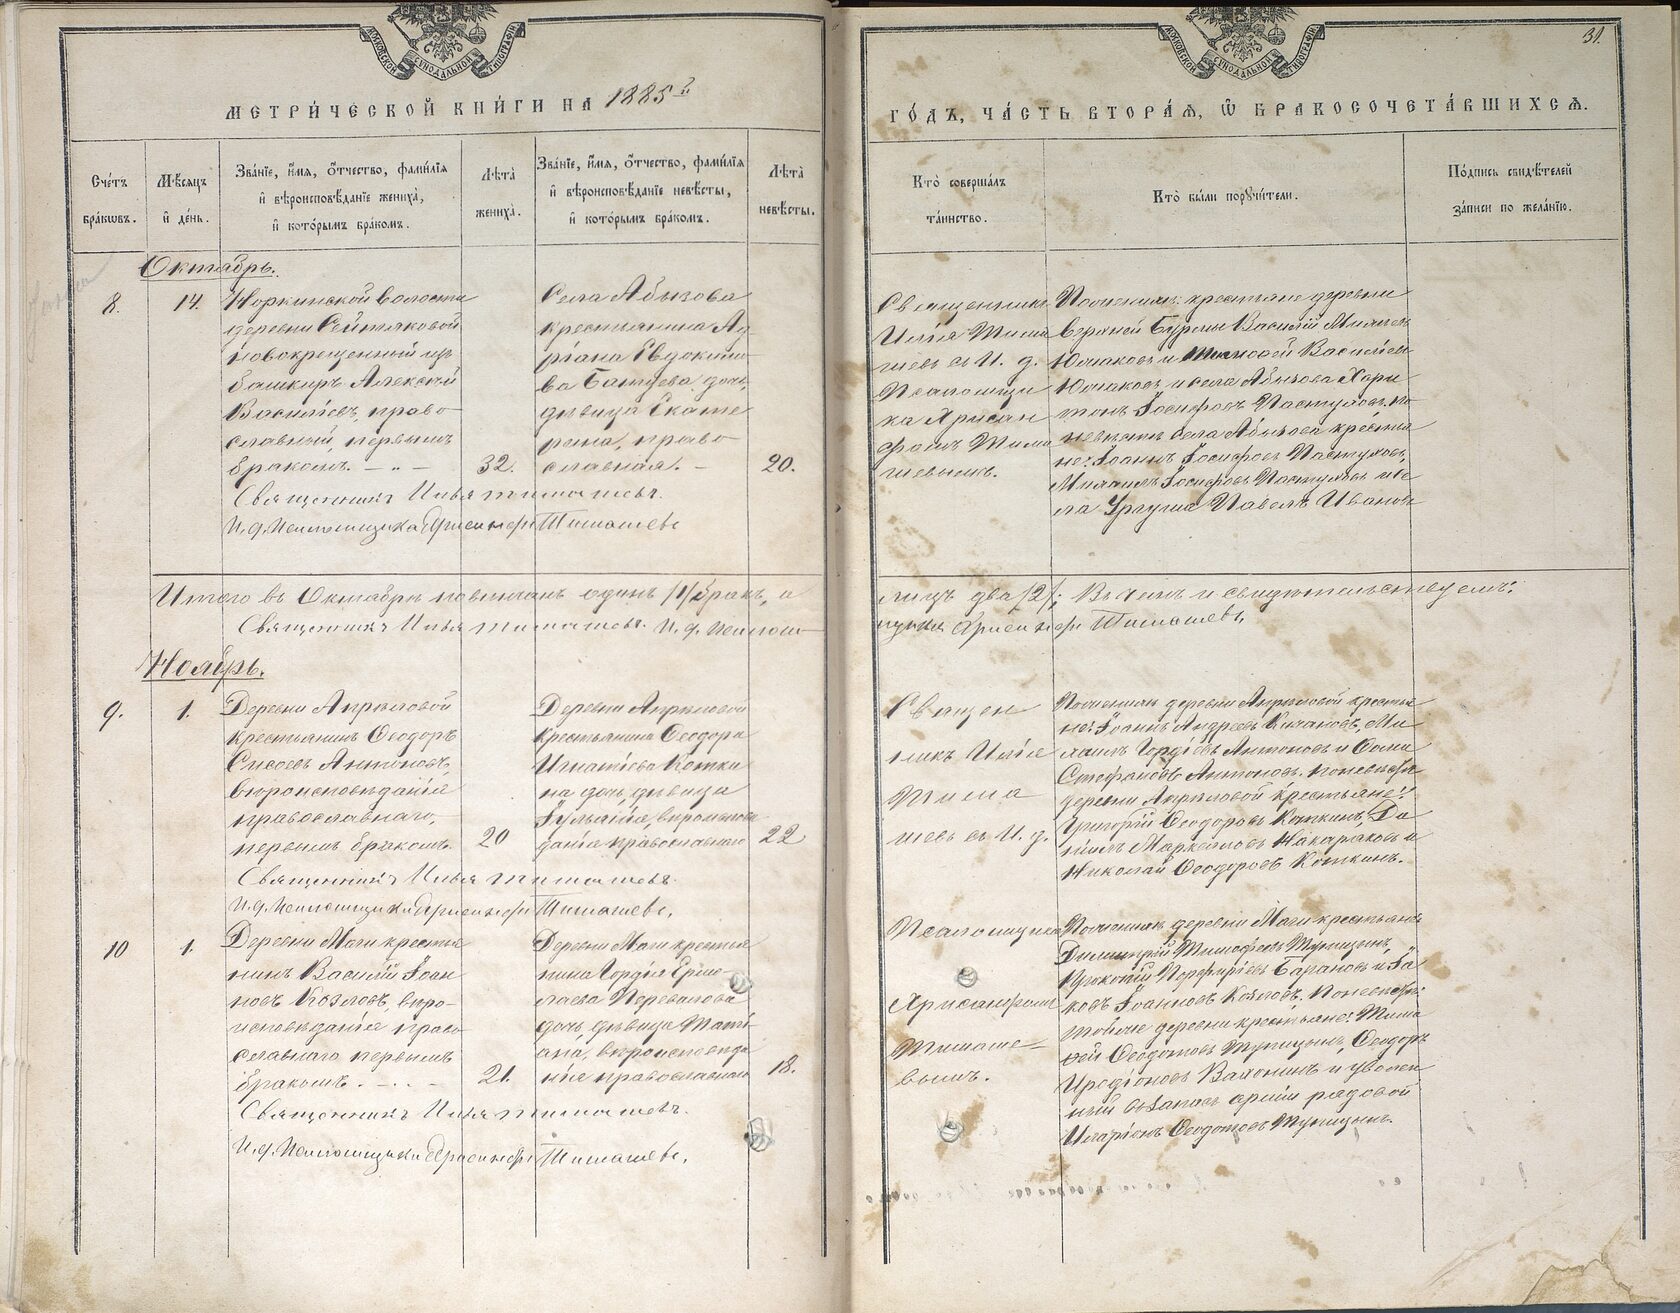 МОСКОВСКОЙ СУНОДАЛЬНОЙ ТИПОГРАФІИ
МЕТРИ́ЧЕСКОЙ КНИ́ГИ НА 1885й
Сче́тъ бра́кωвъ.
Мѣ́сяцъ и҆ де́нь.
Зва́нїе, и҆́мя, ѻ҆́тчество, фами́лїя
и҆ вѣроисповѣ́данїе жениха̀,
и҆ кото́рымъ бра́комъ.
Лѣта̀ жениха̀.
Зва́нїе, и҆́мя, ѻ҆́тчество, фами́лїя
и҆ вѣроисповѣ́данїе невѣ́сты,
и҆ кото́рымъ бра́комъ.
Лѣта̀ невѣ́сты.
Октябрь.
8.
14.
Норкинской волости
деревни Сейтяковой
новокрещенный изъ
башкиръ Алексѣй
Васильевъ, право-
славный, первымъ
бракомъ.
32.
Села Абызова
крестьянина Ад
ріана Евдокимо-
ва дочь,
дѣвица Екате
рина, право-
славная.
20.
Священникъ Илья Тимашевъ.
И. д. Псаломщика Хрисанфъ Тимашевъ
Итого въ Октябрѣ повѣнчанъ одинъ /1/ бракъ, а
Священникъ Илья Тимашевъ. И. д. Псаломъ-
Ноябрь.
9.
1.
Деревни Апряловой
крестьянинъ Ѳеодоръ
Сысоевъ Антоновъ,
вѣроисповѣданія
православнаго,
первымъ бракомъ.
20
Деревни Апряловой
крестьянина Ѳеодора
Игнатіева Котки
на дочь, дѣвица
Іуліанія, вѣроисповѣ
данія православнаго
22
Священникъ Илья Тимашевъ.
И. д. Псаломщика Хрисанфъ Тимашевъ.
10
1.
Деревни Маги крестья
нинъ Василій Іоан
новъ Козловъ, вѣро-
исповѣданія право
славнаго первымъ
бракомъ.
21.
Деревни Маги крестья
нина Гордѣя Ермо-
лаева Перевалова
дочь, дѣвица Тати-
ана, вѣроисповѣда
нія православнаго
18.
Священникъ Илья Тимашевъ.
И. д. Псаломщика Хрисанфъ Тимашевъ.
МОСКОВСКОЙ СУНОДАЛЬНОЙ ТИПОГРАФІИ
31.
ГО́ДЪ, ЧА́СТЬ ВТОРА́Я, Ѽ БРАКОСОЧЕТА́ВШИХСЯ.
Кто̀ соверша́лъ
та́инство.
Кто̀ бы́ли порꙋчи́тели.
По́дпись свидѣ́телей
за́писи по жела́нїю.
Священникъ
Илія Тима
шевъ съ И. д.
Псаломщи
ка Хрисан
фомъ Тима
шевымъ.
крестьяне деревни
Василій
и Василіевъ
и села Абызова Хари
тонъ Іосифовъ Пастуховъ, по
невѣстѣ села Абызова крестья
не: Іоаннъ Іосифовъ Пастуховъ,
Михаилъ Іосифовъ Пастуховъ и се
ла Павелъ Ивановъ
лицъ два /2/; Въ чемъ и свидѣтельствуемъ:
щика Хрисанфъ Тимашевъ.
Священ
никъ Илія
Тима
шевъ съ И. д.
Псаломщика
Хрисанфомъ
Тимаше-
вымъ.
деревни Апряловой крестья
не: Іоаннъ Андреевъ Качановъ, Ми
хаилъ Гордѣевъ Антоновъ и Ѳома
Стефановъ Антоновъ. по невѣстѣ
деревни Апряловой крестьяне:
Григорій Ѳеодоровъ Коткинъ, Да
ніилъ Маркеловъ и
Николай Ѳеодоровъ Коткинъ.
деревни Маги крестьяне
Димитрій Тимофеевъ Тупицынъ,
Прокопій Порфиріевъ Барановъ и Іа
ковъ Іоанновъ Козловъ. По невѣстѣ
тойже деревни крестьяне: Тимо
фей Ѳеодотовъ Тупицынъ, Ѳеодоръ
Иродіоновъ и уволен
ный въ запасъ арміи рядовой
Иларіонъ Ѳеодотовъ Тупицынъ.